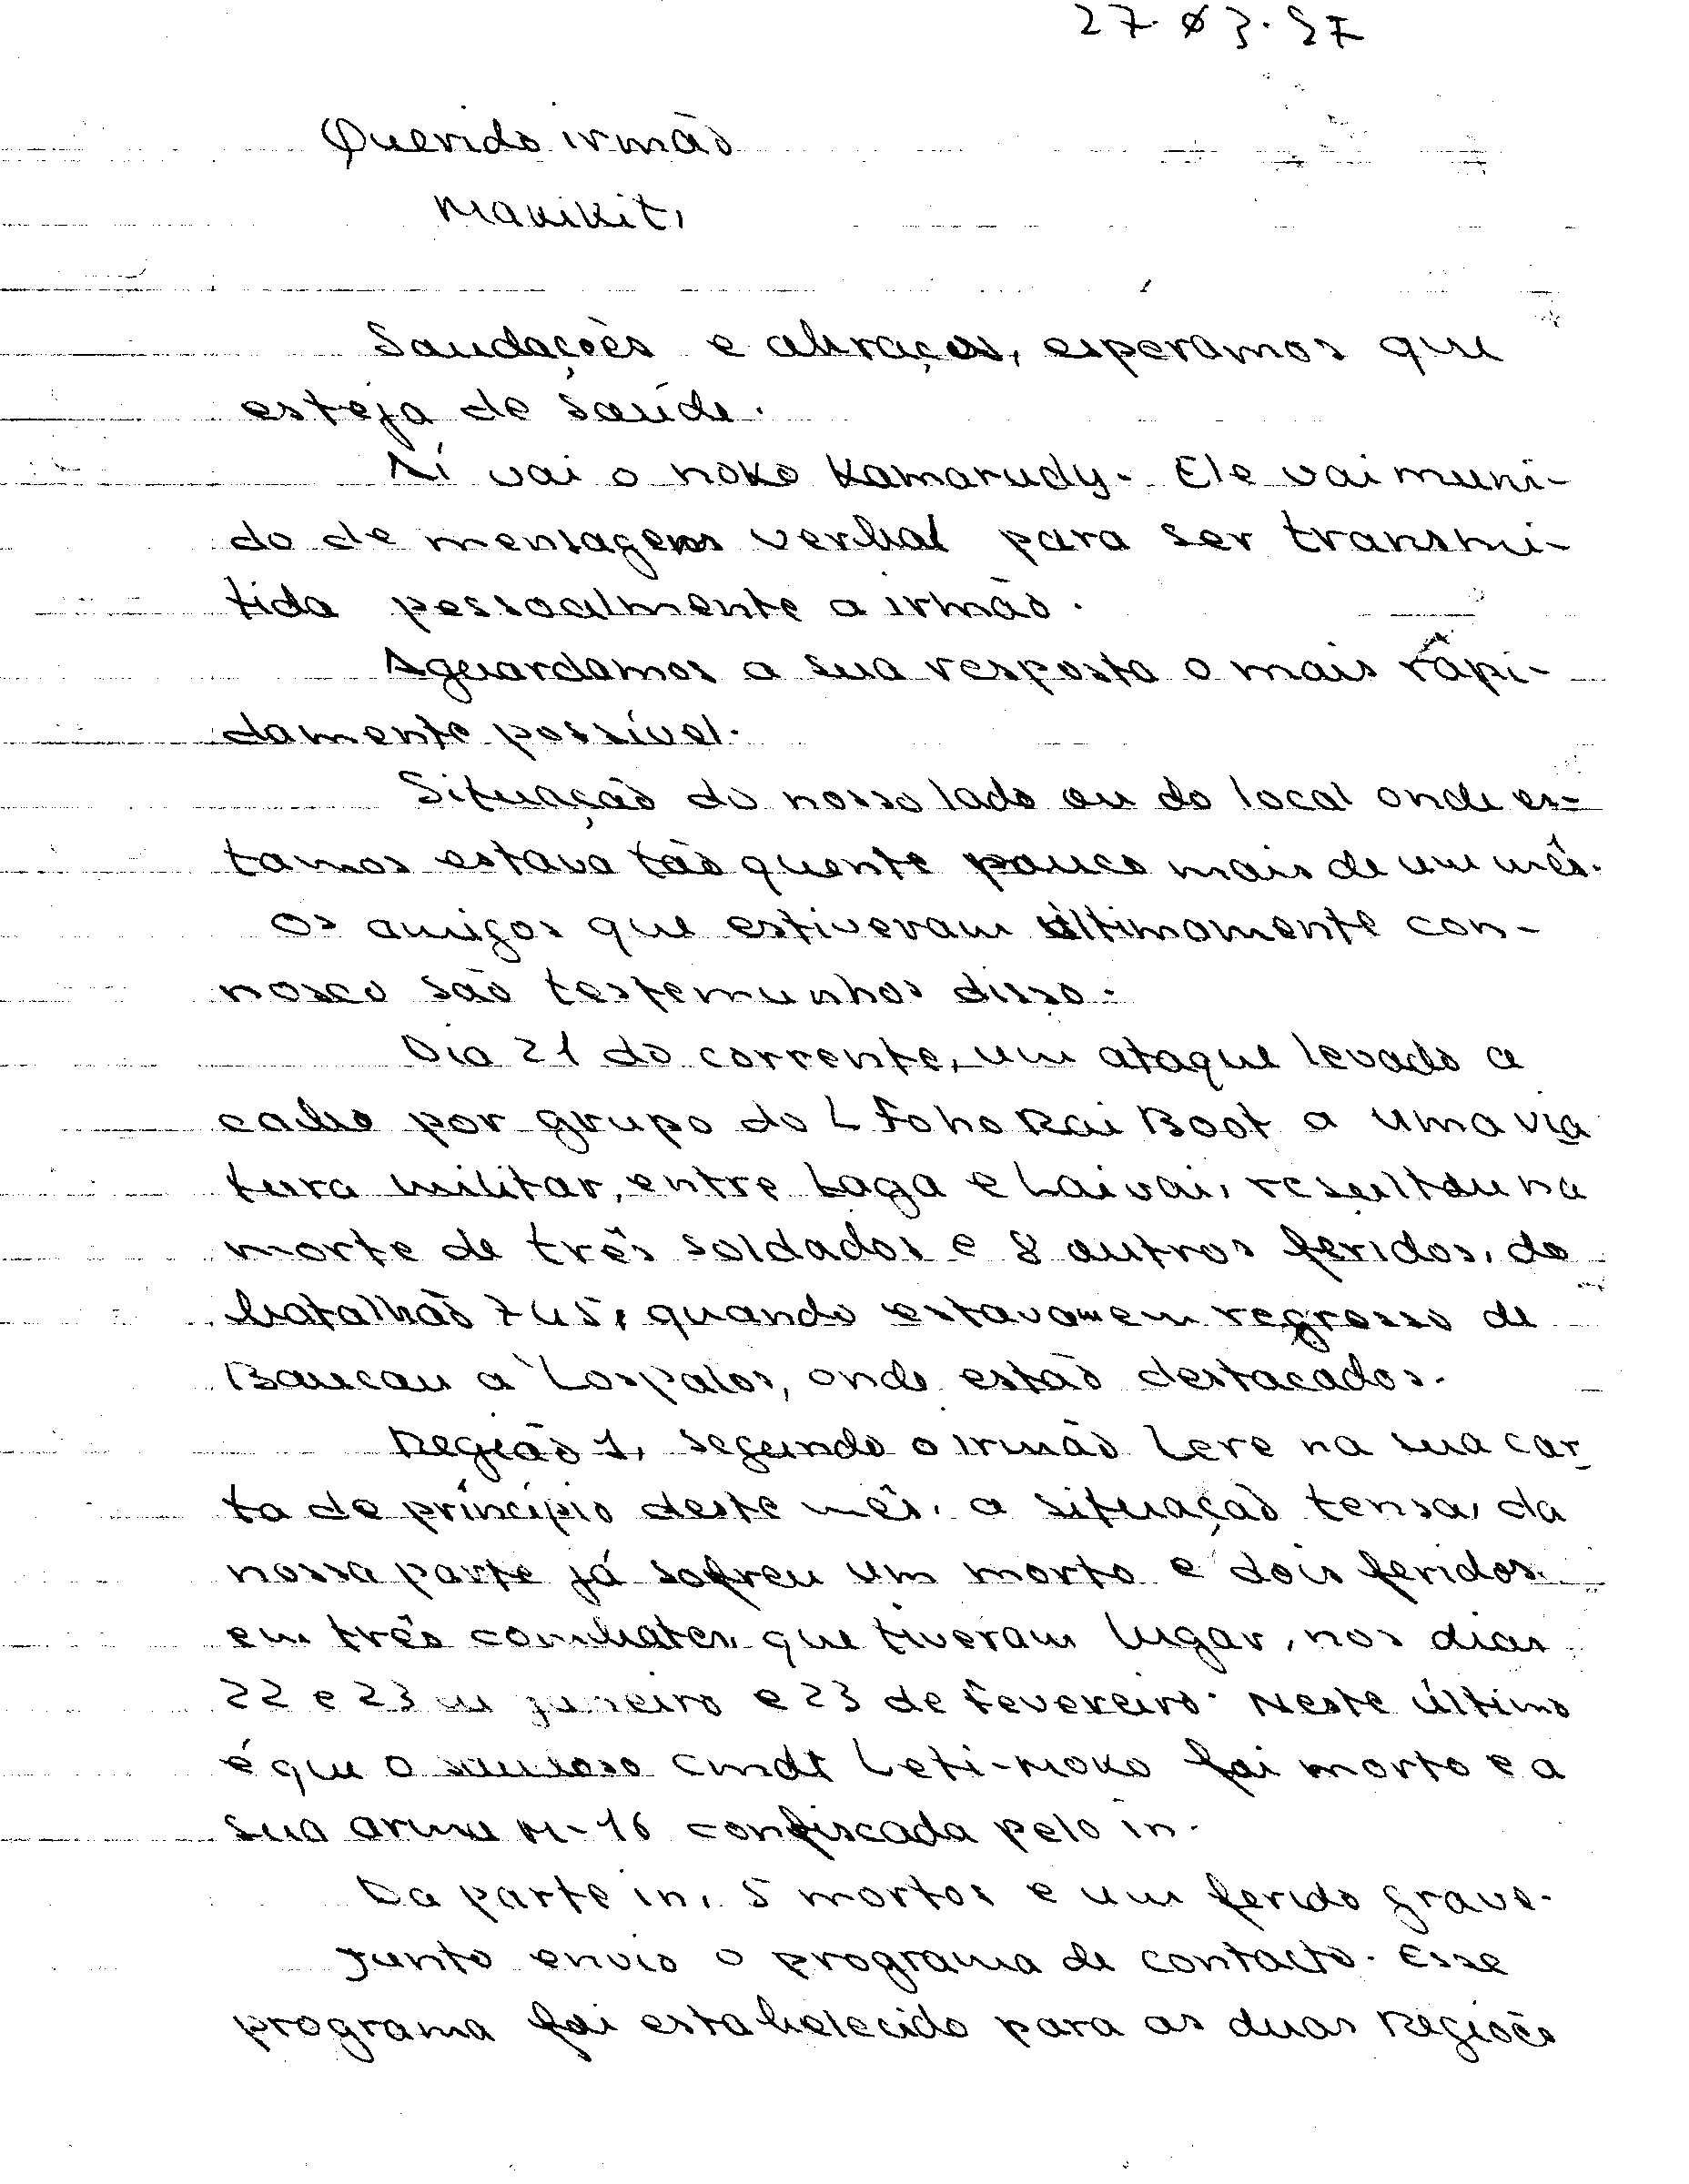 27.Ø3.97
Querido irmão
Maukiit,
Saudações e abraços, esperamos que
esteja de saúde.
Aí vai o noko Kamarudy. Ele vai muni-
do de mensagem verbal para ser transmi-
tida pessoalmente a irmão.
Aguardamos a sua resposta o mais rápi-
damente possível.
Situação do nosso lado ou do local onde es-
tamos estava tão quente pouco mais de um mês.
Os amigos que estiveram últimamente con-
nosco são testemunhos disso.
Dia 21 do corrente, um ataque levado a
cabo por grupo do L Foho Rai Boot a uma via
tura militar, entre Laga e Laivai, resultou na
morte de três soldados e 8 outros feridos, do
batalhão 745, quando estavam em regresso de
Baucau a Lospalos, onde estão destacados.
Região 1, segundo o irmão Lere na sua car
ta de princípio deste mês, a situação tensa, da
nossa parte já sofreu um morto e dois feridos
em três combates, que tiveram lugar, nos dias
22 e 23 de janeiro e 23 de fevereiro. Neste último
é que o saudoso Cmdt Leti-Moko foi morto e a
sua arma M-16 confiscada pelo in.
Da parte in, 5 mortos e um ferido grave.
Junto envio o programa de contacto. Esse
programa foi estabelecido para as duas Regiões